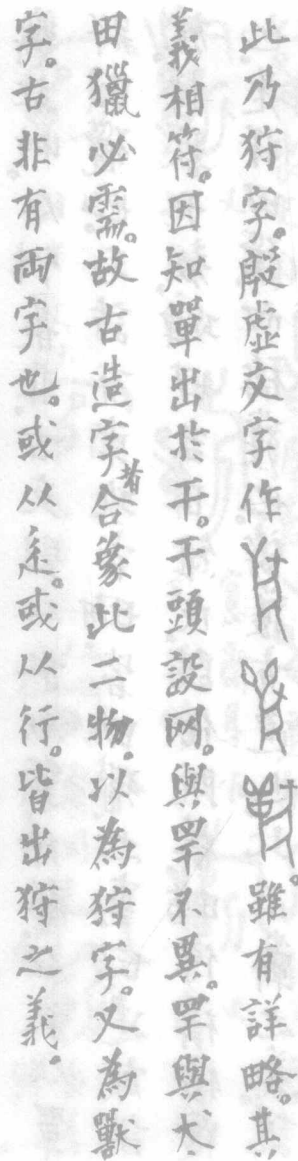 此乃狩字。殷虛文字作。雖有詳略。其
義相符。因知單出於干。干頭設网。與䍐不異。䍐與犬、
田獵必需。故古造字者合象此二物。以為狩字。又為獸
字。古非有兩字也。或从辵。或从行。皆出狩之義。